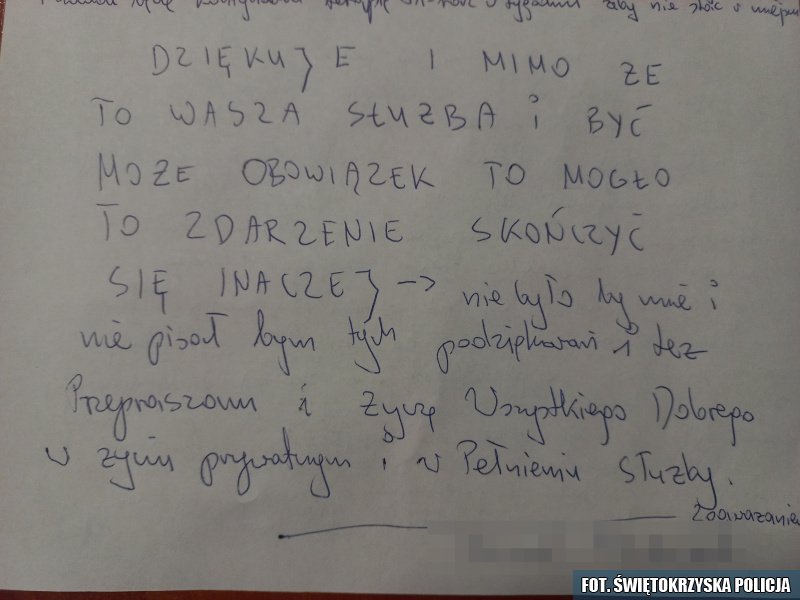 aby nie stać w miejscu
DZIĘKUJE I MIMO ZE
TO WASZA SŁUZBA i BYĆ
MOŻE OBOWIĄZEK TO MOGŁO
TO ZDARZENIE SKOŃCZYĆ
SIĘ INACZEJ -> nie było by mnie i
nie pisał bym tych podziękowań i tez
Przepraszam i życzę Wszystkiego Dobrego
w życiu prywatnym i w Pełnieniu służby.
FOT. ŚWIĘTOKRZYSKA POLICJA